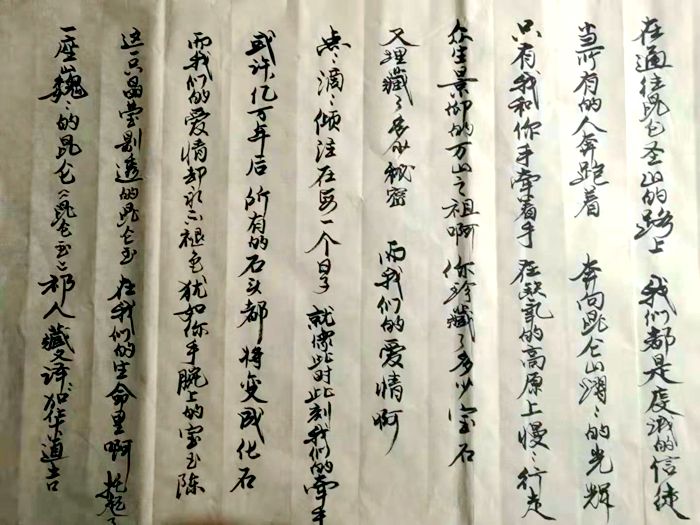 在通往昆仑圣山的路上 我们都是虔诚的信徒
当所有的人奔跑着 奔向昆仑山的光辉
只有我和你手牵着手 在缺氧的高原上慢慢行走
众生景仰的万山之祖啊 你珍藏了多少宝石
又埋藏了多少秘密 而我们的爱情啊
点点滴滴倾注在每一个日子 就像此时此刻我们的牵手
或许亿万年后 所有的石头都将变成化石
而我们的爱情却永不褪色 犹如你手腕上的宝玉
这只晶莹剔透的昆仑玉 在我们的生命里啊 托起了
一座巍巍的昆仑 《昆仑玉》 祁人 藏文译